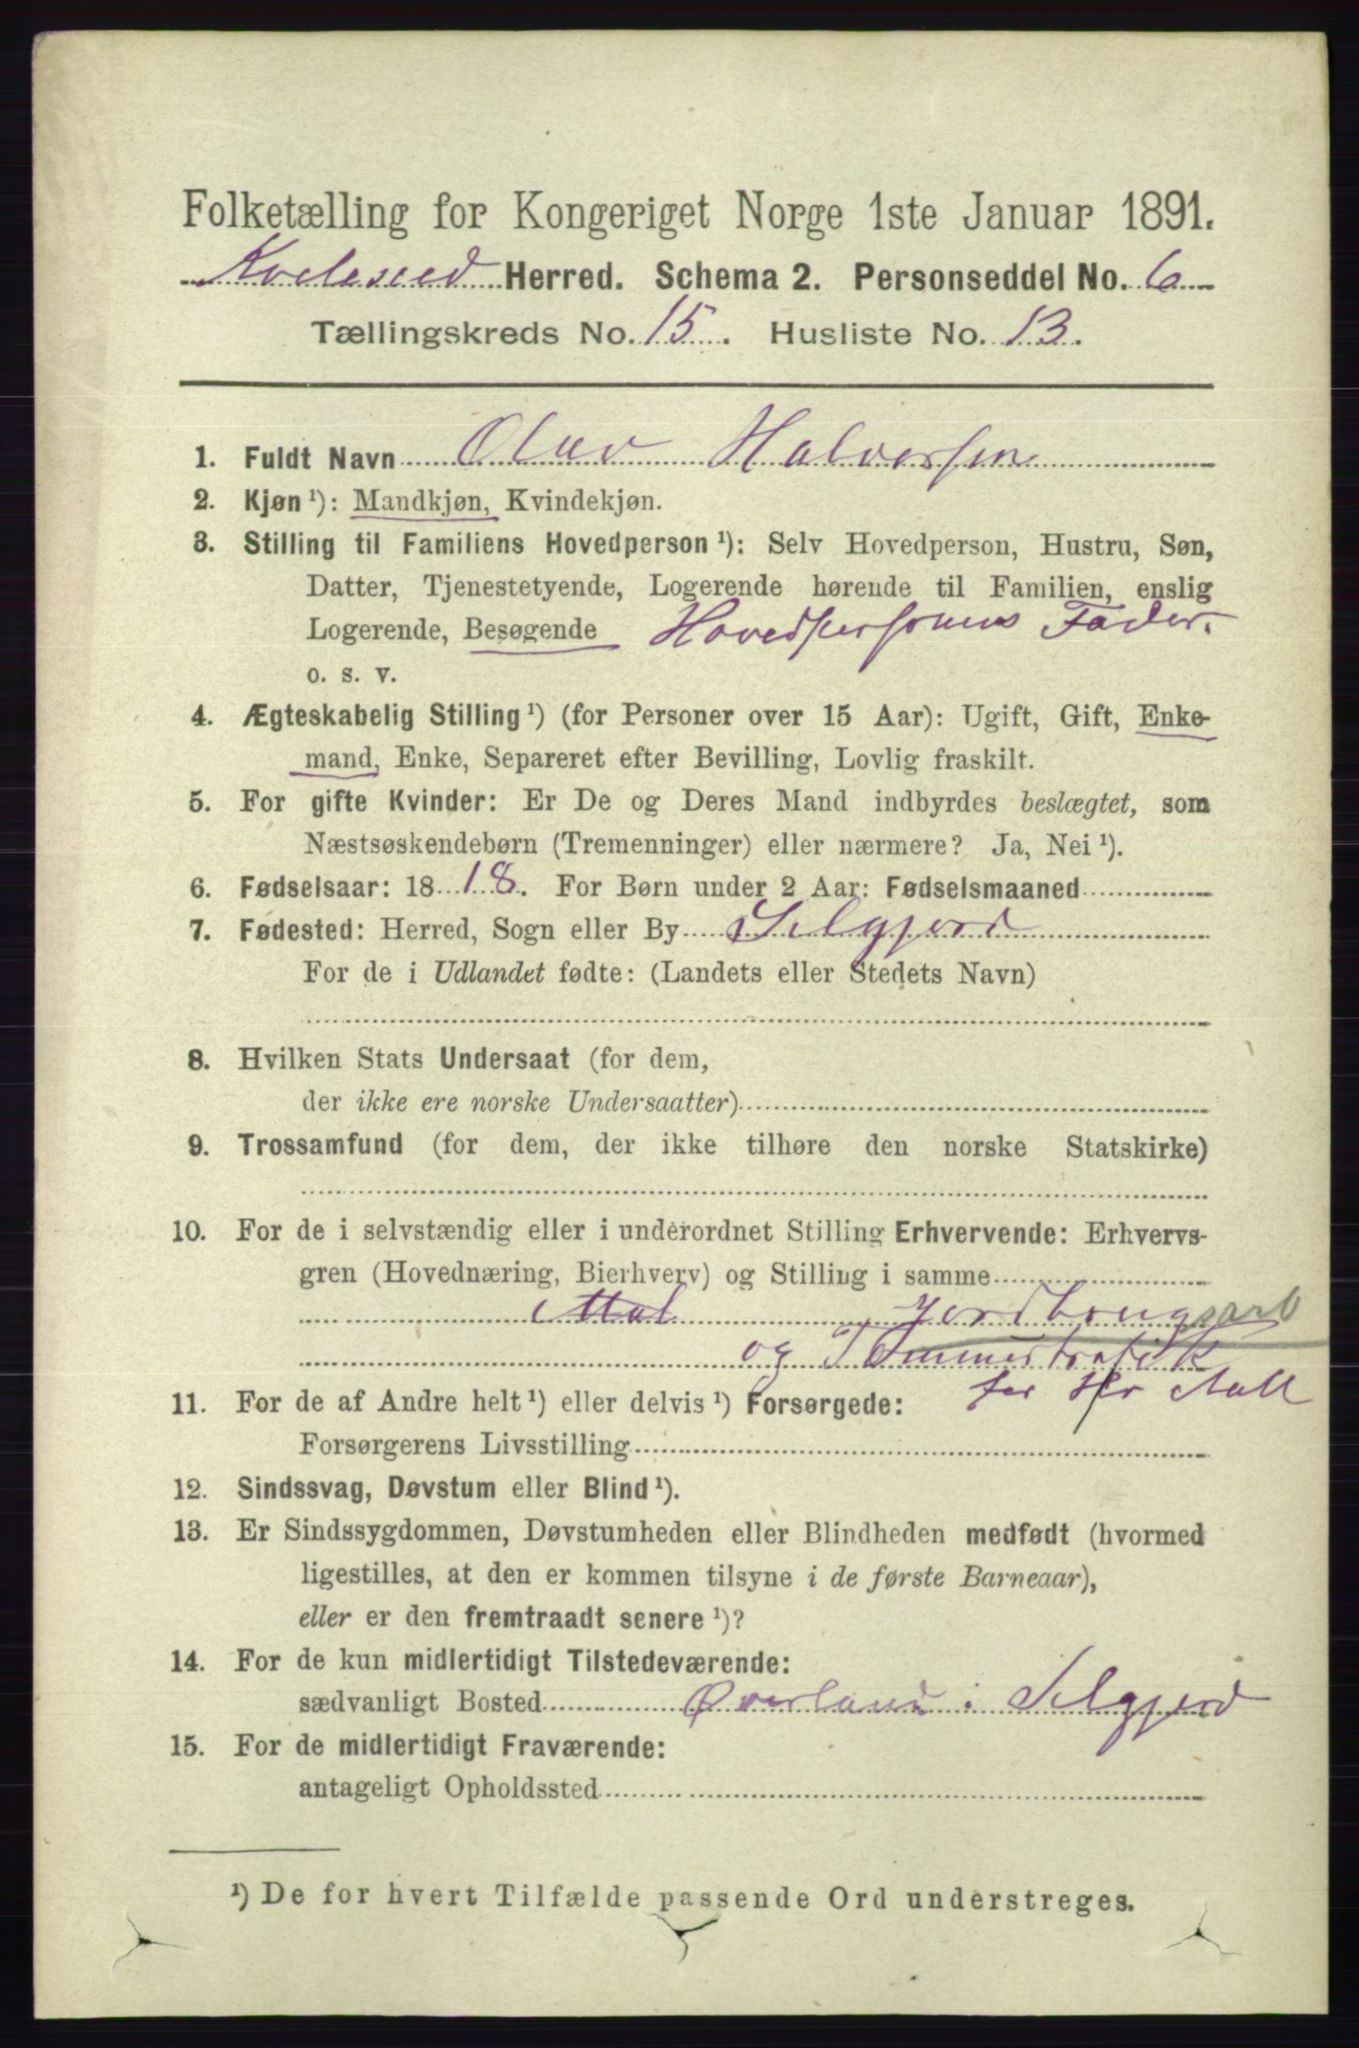 Folketælling for Kongeriget Norge 1ste Januar 1891.
Kviteseid Herred. Schema 2. Personseddel No. 6
Tællingskreds No. 15. Husliste No. 13.
1. Fuldt Navn Olav Halvorsen
2. Kjøn ¹): Mandkjøn, Kvindekjøn.
3. Stilling til Familiens Hovedperson ¹): Selv Hovedperson, Hustru, Søn,
Datter, Tjenestetyende, Logerende hørende til Familien, enslig
Logerende, Besøgende Hovedpersonens Fader.
o. s. v.
4. Ægteskabelig Stilling ¹) (for Personer over 15 Aar): Ugift, Gift, Enke-
mand, Enke, Separeret efter Bevilling, Lovlig fraskilt.
5. For gifte Kvinder: Er De og Deres Mand indbyrdes beslægtet, som
Næstsøskendebørn (Tremenninger) eller nærmere? Ja, Nei ¹).
6. Fødselsaar: 18 18. For Børn under 2 Aar: Fødselsmaaned
7. Fødested: Herred, Sogn eller By Selgjord
For de i Udlandet fødte: (Landets eller Stedets Navn)
8. Hvilken Stats Undersaat (for dem,
der ikke ere norske Undersaatter)
9. Trossamfund (for dem, der ikke tilhøre den norske Statskirke)
10. For de i selvstændig eller i underordnet Stilling Erhvervende: Erhvervs-
gren (Hovednæring, Bierhverv) og Stilling i samme
Jordbrugsarb
og Tømmertrafik
for Hr Aall
11. For de af Andre helt ¹) eller delvis ¹) Forsørgede:
Forsørgerens Livsstilling
12. Sindssvag, Døvstum eller Blind ¹).
13. Er Sindssygdommen, Døvstumheden eller Blindheden medfødt (hvormed
ligestilles, at den er kommen tilsyne i de første Barneaar),
eller er den fremtraadt senere ¹)?
14. For de kun midlertidigt Tilstedeværende:
sædvanligt Bosted Øverland i Selgjord
15. For de midlertidigt Fraværende:
antageligt Opholdssted
¹) De for hvert Tilfælde passende Ord understreges.